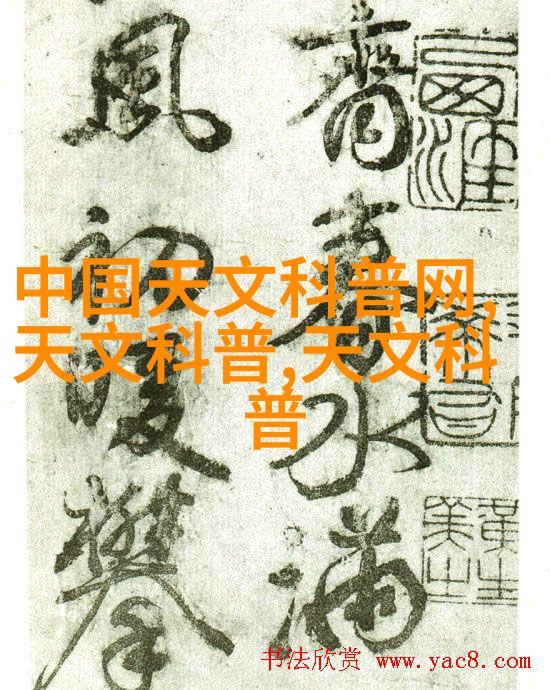 中国天文科普网,
天文科普,天文科
普
春水滿
風初暖攀
书法欣赏 www.yac8.com